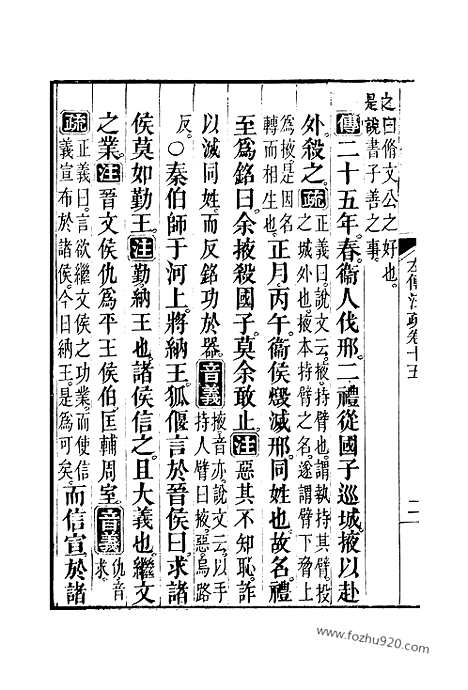 之曰脩文公之好也
是說書子善之事
左傳注疏卷十五
二
傳二十五年春衞人伐邢二禮從國子巡城掖以赴
外殺之疏正義曰說文云掖持臂也謂執持其臂投
之城外也掖本持臂之名遂謂臂下脅上
爲掖是因名
轉而相生也正月丙午衞侯燬滅邢同姓也故名禮
至爲銘曰余掖殺國子莫余敢止注惡其不知恥詐
以滅同姓而反銘功於器音義掖音亦說文云以手
持人臂曰掖惡烏路
反○秦伯師于河上將納王狐偃言於晉侯曰求諸
侯莫如勤王注勤納王也諸侯信之且大義也繼文
之業注晉文侯仇爲平王侯伯匡輔周室音義仇音
求
疏正義曰言欲繼文侯之功業而使信
義宣布於諸侯今日納王是爲可矣而信宣於諸
www.fozhu920.com